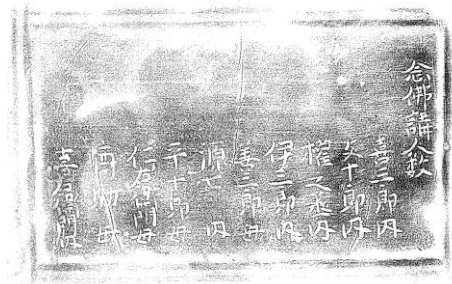 念佛講人数
喜三郎内
久十郎内
権之丞内
伊三郎内
善三郎母
源七内
平十郎母
仁右衛門母
助母
喜右衛門内